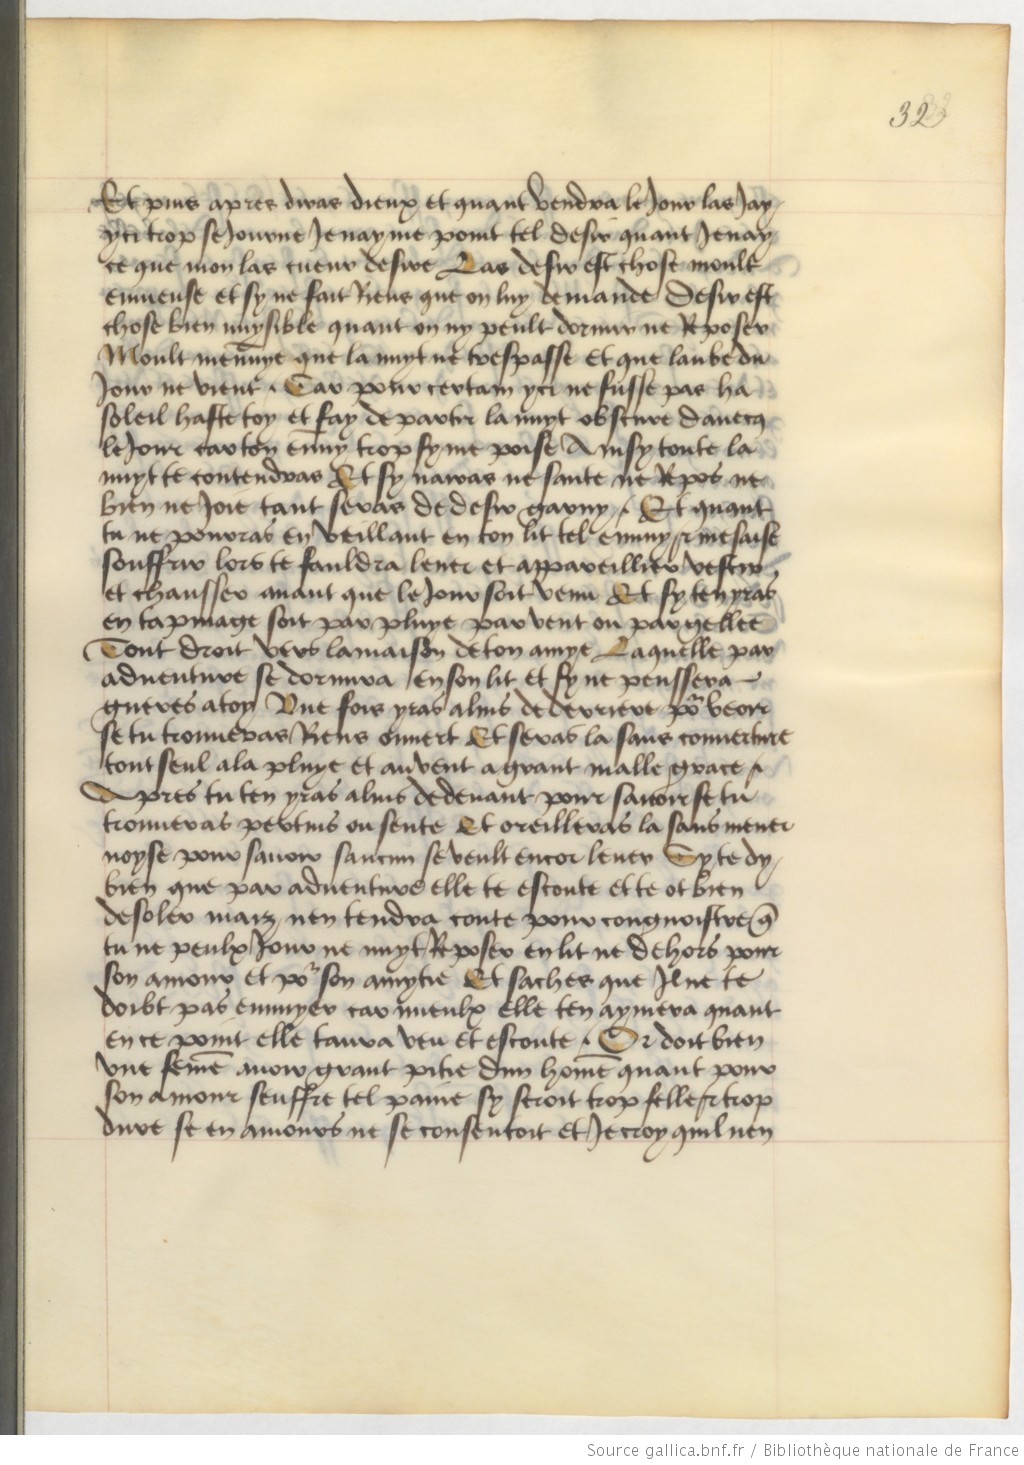 32
Et puis apres diras dieux et quant vendra le Jour las Jay
yci trop seJourne Je nayme point tel desir quant Je nay
ce que mon las cueur desire Las desir est chose moult
enuieuse et sy ne fait Riens que on luy demande Desir est
chose bien nuysible quant on ny peult dormir ne Reposer
Moult mennuye que la nuyt ne trespasse Et que laube du
Jour ne vient . Car pour certain yci ne fusse pas ha
soleil haste toy et fay departir la nuyt obscure dauecq
le Jour car ton enuy trop sy me poise Ainsy toute la
nuyt te contendras Et sy nauras ne sante ne Repos ne
bien ne Joie tant seras de desir garny . Et quant
tu ne pourras en veillant en ton lit tel ennuy et mesaise
souffrir lors te fauldra leuer et appareillier vestir
et chausser auant que le Jour soit venu Et sy ten yras
en tapinage soit par pluye par vent ou par gellee
Tout droit vers la maison de ton amye Laquelle par
aduenture se dormira en son lit et sy ne penssera
gueres a toy Vne fois yras aluis de derriere por veoir
se tu trouueras Riens ouuert Et seras la sans couuerture
tout seul a la pluye et au vent a grant malle grace .
Apres tu ten yras aluis dedeuant pour sauoir se tu
trouueras pertuis ou sente Et oreilleras la sans mener
noyse pour sauoir saucun se veult encor leuer Sy te dy
bien que par aduenture elle te escoute et te ot bien
desoler maiz nen tendra conte pour congnoistre q̃
tu ne peulx Jour ne nuyt Reposer en lit ne dehors pour
son amour et por son amytie Et saches que Il ne te
doibt pas ennuyer car mieulx elle ten aymera quant
en ce point elle taura veu et escoute . Or doit bien
vne fem̃e auoir grant pitie dun hom̃e quant pour
son amour seuffre tel paine sy seroit trop felle et trop
dure se en amours ne se consentoit et Je croy quil nen
Source gallica.bnf.fr / Bibliothèque nationale de France